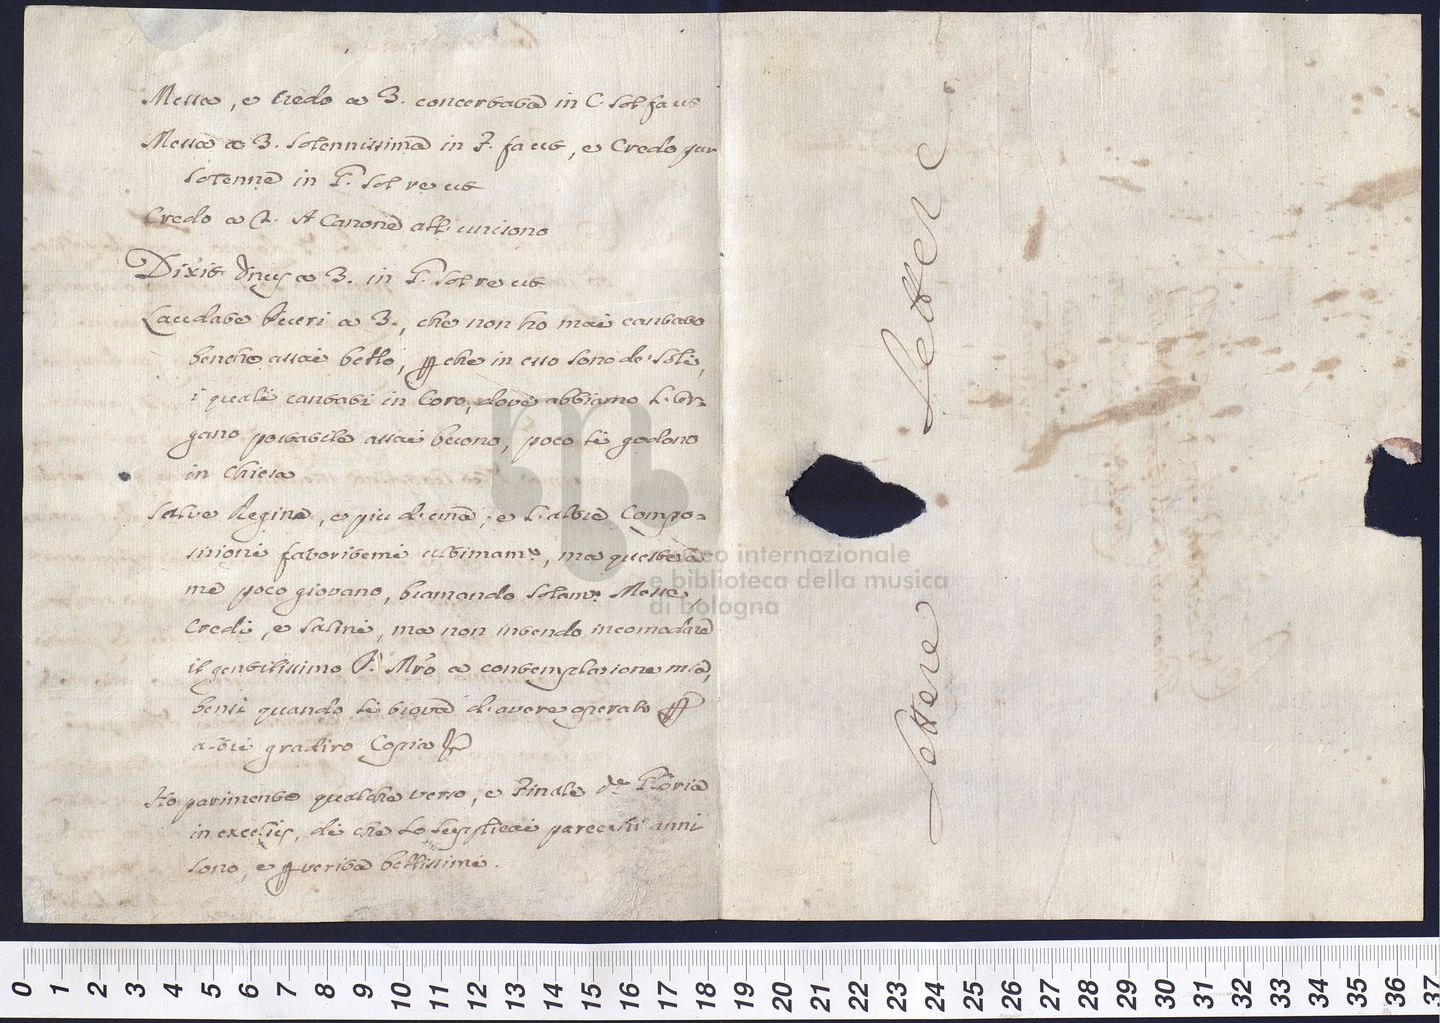 Messa, e Credo a 3. concertata in C sol fa ut
Messa a 3. solennissima in F. fa ut, e Credo pur
solenne in G. sol re ut
Credo a 2. A Canone all'unisono
Dixit Dnus a 3. in G. sol re ut
Laudate Pueri a 3., che non ho mai cantato
benche assai bello, p che in esso sono de' Soli,
i quali cantati in Coro, dove abbiamo l'Or=
gano portatile assai buono, poco si godono
in Chiesa
Salve Regina, e piu d'una; e l'altre Compo=
sizioni favoritemi ultimam.e, ma queste a
me poco giovano, bramando solam.e Messe,
Credi, e Salmi, ma non intendo incomodare
il gentilissimo P. Mro a contemplazione mia,
bensi quando si trova d'avere operato p
altri gradiro Copia
Ho parimente qualche verso, e Finale de Gloria
in excelsis, di che lo supplicai parecchi anni
sono, e p verita bellissimi.
Lettere Lettere
museo internazionale
e biblioteca della musica
di bologna
0 1 2 3 4 5 6 7 8 9 10 11 12 13 14 15 16 17 18 19 20 21 22 23 24 25 26 27 28 29 30 31 32 33 34 35 36 37